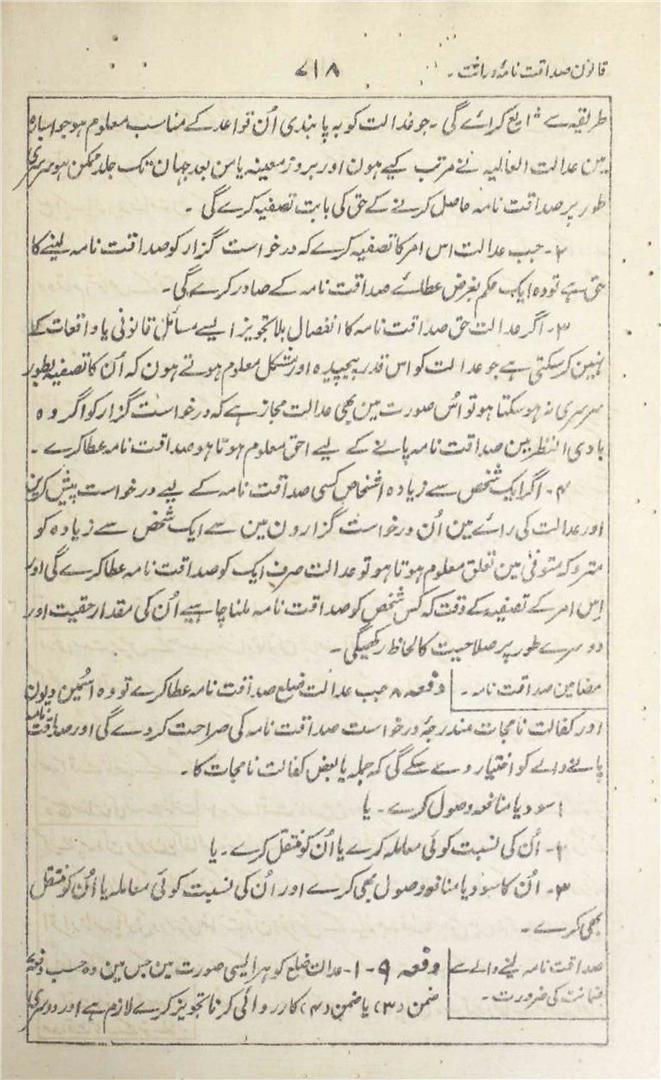 قانون صداقت نامۂ وراثت۔ ۷۱۸
طریقہ سے شایع کرائے گی۔ جو عدالت کو بہ پابندی اُن قواعد کے مناسب معلوم ہو جو اسبارہ
مین عدالت العالیہ نے مرتب کیے ہون اور بروز معینہ یا من بعد جہان تک جلد ممکن ہو سرسری
طور پر صداقت نامہ حاصل کرنے کے حق کی بابت تصفیہ کرے گی۔
۲۔ جب عدالت اس امر کا تصفیہ کرے کہ درخواست گزار کو صداقت نامہ لینے کا
حق ہے تو وہ ایک حکم بغرض عطائے صداقت نامہ کے صادر کرے گی۔
۳۔ اگر عدالت حق صداقت نامہ کا انفصال بلا تجویز ایسے مسائل قانونی یا واقعات کے
نہین کر سکتی ہے جو عدالت کو اس قدر پیچیدہ اور مشکل معلوم ہوتے ہون کہ اُن کا تصفیہ بطور
سرسری نہ ہو سکتا ہو تو اُس صورت مین بھی عدالت مجاز ہے کہ درخواست گزار کو اگر وہ
بادی النظر مین صداقت نامہ پانے کے لیے احق معلوم ہوتا ہو صداقت نامہ عطا کرے۔
۴۔ اگر ایک شخص سے زیادہ اشخاص کسی صداقت نامہ کے لیے درخواست پیش کرین
اور عدالت کی رائے مین اُن درخواست گزارون مین سے ایک شخص سے زیادہ کو
متروکہ متوفیٰ مین تعلق معلوم ہوتا ہو تو عدالت صرف ایک کو صداقت نامہ عطا کرے گی اور
اِس امر کے تصفیہ کے وقت کہ کس شخص کو صداقت نامہ ملنا چاہیے اُن کی مقدار حقیت اور
دوسرے طور پر صلاحیت کا لحاظ رکھیگی۔
مضامین صداقت نامہ۔ دفعہ ۸ جب عدالت ضلع صداقت نامہ عطا کرے تو وہ اسمین دیون
اور کفالت نامجات مندرجۂ درخواست صداقت نامہ کی صراحت کر دے گی اور صداقت نامہ
پانے والے کو اختیار دے سکے گی کہ جملہ یا بعض کفالت نامجات کا۔
۱ سود یا منافعہ وصول کرے۔ یا
۲۔ اُن کی نسبت کوئی معاملہ کرے یا اُن کو منتقل کرے۔ یا
۳۔ اُن کا سود یا منافعہ وصول بھی کرے اور اُن کی نسبت کوئی معاملہ یا اُن کو منتقل
بھی کرے۔
صداقت نامہ لینے والے سے دفعہ ۹۔۱۔ عدالت ضلع کو ہر ایسی صورت مین جس مین وہ حسب دفعہ
ضمانت کی ضرورت۔ ضمن (۳) یا ضمن (۴) کارروائی کرنا تجویز کرے لازم ہے اور دوسری